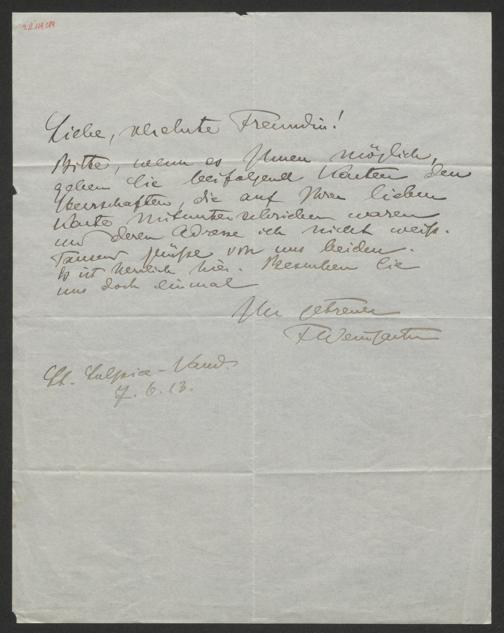 Liebe, verehrte Freundin!
Bitte, wenn es Ihnen möglich,
geben Sie beifolgend Karten den
Herrschaften, die auf Ihrer lieben
Karte mitunterschrieben waren
und deren Adresse ich nicht weiß.
Tausend Grüße von uns beiden.
Es ist herrlich hier. Besuchen Sie
uns doch einmal
Ihr getreuer
FWeingartner
St. Sulpice - Vaud.
7. 6. 13.